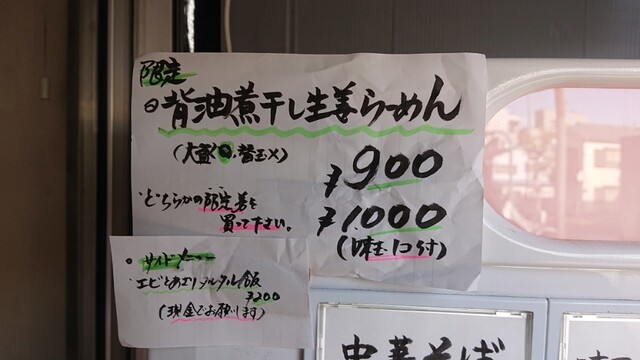 限定
背油煮干し生姜らーめん
(大盛〇・替玉×)
¥900
・どちらかの限定券を
買って下さい。
¥1.000
(味玉1コ付)
サイドメニュー
・エビとあさりタルタル飯
¥200
(現金でお願いします)
中華そば